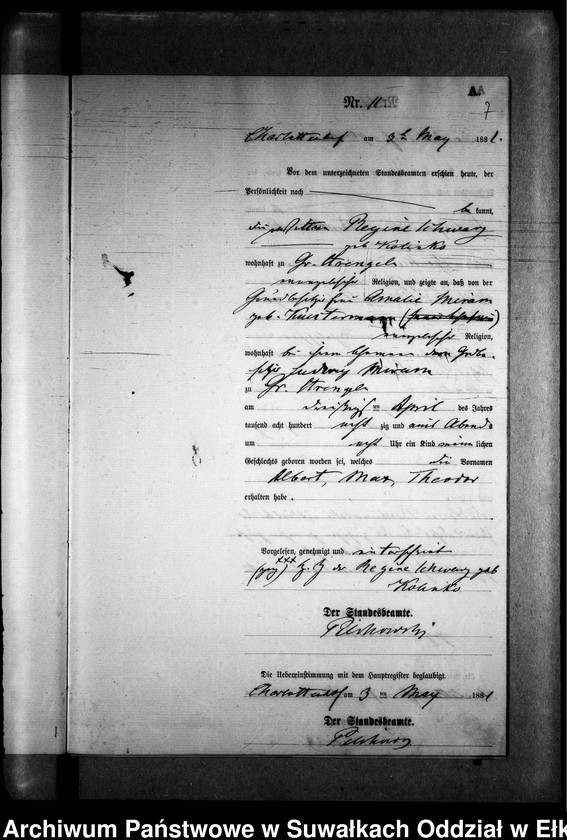 A
7
Nr. 11.
Charlottenhof am 3ten May 1881.
Vor dem unterzeichneten Standesbeamten erschien heute, der
Persönlichkeit nach
be kannt,
die Regine Schwarz
geb Kolinko
wohnhaft zu Gr. Strengeln
evangelischer Religion, und zeigte an, daß von der
Grundbesitzer frau Amalie Miram
geb.
evangelischer Religion,
wohnhaft bei ihrem Ehemann dem Grdbe-
sitzer Ludwig Miram
zu Gr. Strengeln
am dreißigsten April des Jahres
tausend acht hundert acht zig und eins Abends
um acht Uhr ein Kind männ lichen
Geschlechts geboren worden sei, welches die Vornamen
Albert, Max, Theodor
erhalten habe.
Vorgelesen, genehmigt und unterschrieben
(gez) xxx Hz. der Regine Schwarz geb
Kolinko
Der Standesbeamte.
Die Uebereinstimmung mit dem Hauptregister beglaubigt.
Charlottenhof am 3 ten May 1881
Der Standesbeamte.
Archiwum Państwowe w Suwałkach Oddział w Ełk